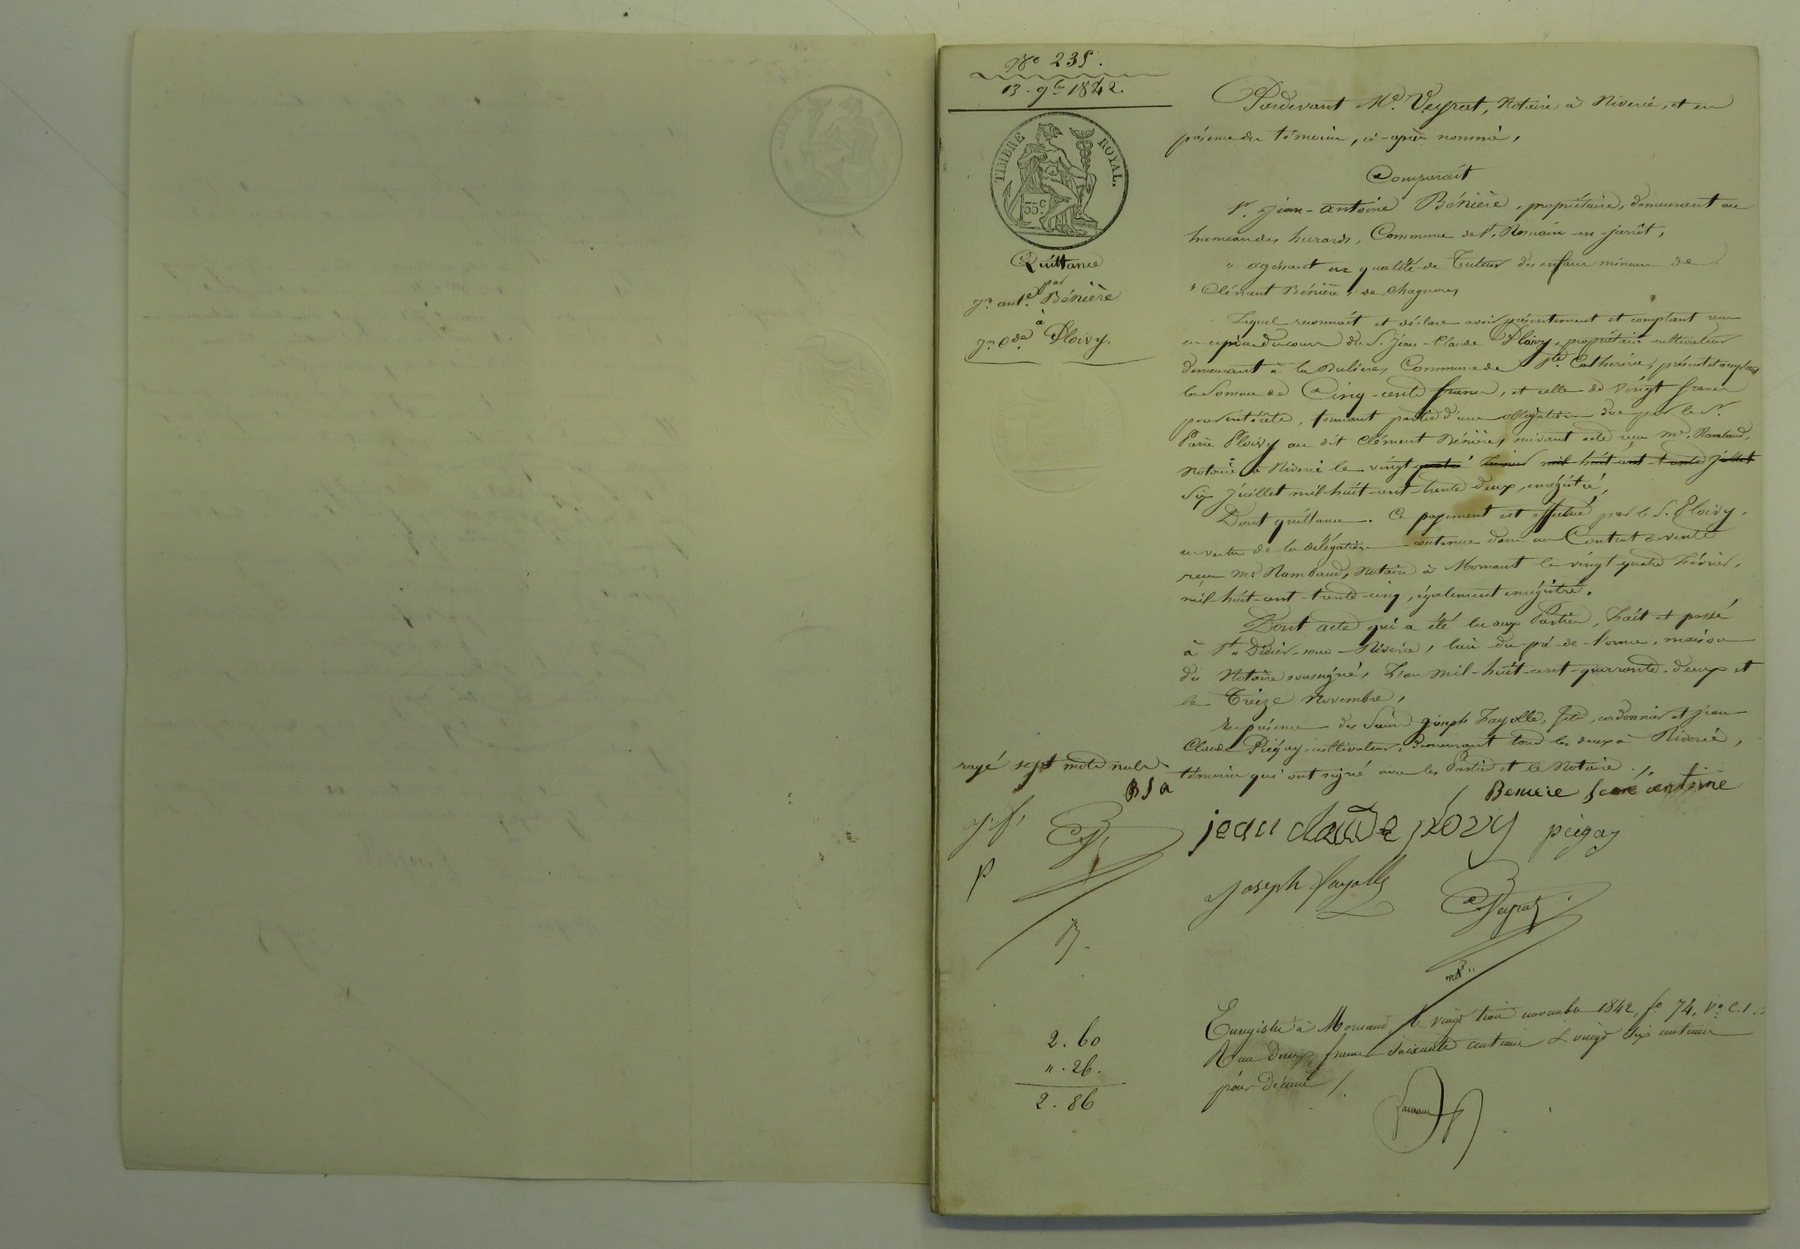 No 235.
13. 9bre 1842.
TIMBRE ROYAL.
35c
Quittance
par
Jn ante Bénière
à
Jn Cde Ploivy.
Pardevant Me. Veyrat, Notaire à Riverie, et en
présence des témoins, ci-après nommés,
Comparait
Sr. Jean-Antoine Bénière, propriétaire, demeurant au
hameau des hurards, Commune de St. Romain-en-jarrêt,
" agissant en qualité de Tuteur des enfans mineurs de
" Clément Bénière, de Chagneux,
Lequel reconnaît et déclare avoir présentement et comptant reçu
en espèces du cours du S. Jean-Claude Ploivy, propriétaire cultivateur
demeurant à la Bulière, Commune de Ste Catherine, présent et acceptant
la Somme de Cinq-cents francs, et celle de vingt francs
pour intérêts, formant partie d'une obligation due par le Sr.
Ploivy au dit Clément Bénière, suivant acte reçu Me. Rambaud,
Notaire à Riverie le vingt quatre février mil huit cent trente juillet
Six Juillet mil-huit-cent-trente-deux, enrégistré,
Dont quittance. Ce payement est effectué par le S. Ploivy,
en vertu de la délégation contenue dans un Contrat de vente
reçu Me Rambaud, Notaire à Mornant le vingt quatre février,
mil-huit-cent-trente-cinq, également enrégistré.
Dont acte qui a été lu aux Parties, Fait et passé
à St. Didier-sous-Riverie, lieu du pré-de-l'orme, maison
du Notaire soussigné, L'an mil-huit-cent-quarante-deux et
le Treize Novembre,
En présence des Sieurs Joseph Fayolle, fils, cordonnier et Jean
Claude Piégay, cultivateur, demeurant tous les deux à Riverie,
témoins qui ont signé avec les Parties et le Notaire ./.
rayé sept mots nuls
B J a
Beniere Jean antoine
j.f.
jean claude plovy piegay
p
joseph fayolle Veyrat
not.
Enregistré à Mornant le vingt trois novembre 1842, fo 74, Vo C.1.
Reçu deux francs Soixante centimes & vingt Six centimes
pour décime /.
2.60
".26.
2.86